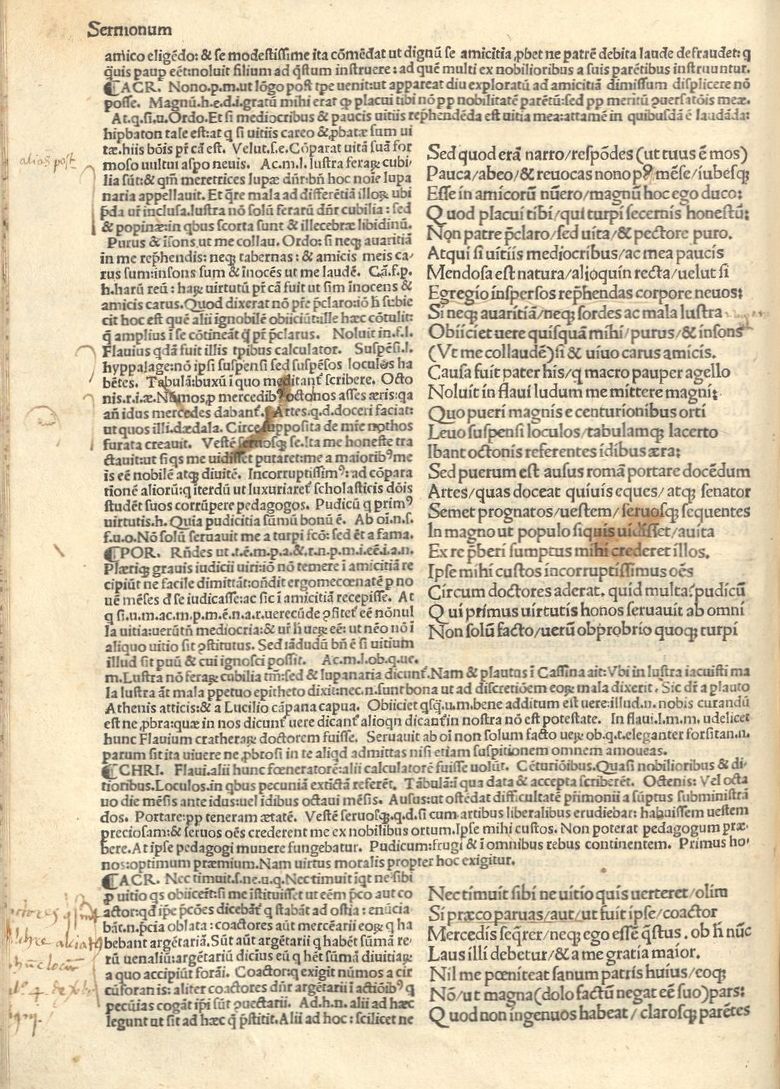 Sermonum
amico eligēdo: & se modestissime ita cōmēdat ut dignū se amicitia ꝓbet ne patrē debita laude defraudet: q
q̄uis paup eēt: noluit filium ad q̄stum instruere: ad quē multi ex nobilioribus a suis parētibus instruuntur.
¶ACR. Nono.p.m.ut lōgo post tpe uenit: ut appareat diu exploratū ad amicitiā dimissum displicere nō
posse. Magnū.h.e.d.i.gratū mihi erat ꝙ placui tibi nō pp nobilitatē parētū: sed pp meritū ꝯuersatōis meæ.
At.q.si.u. Ordo. Et si mediocribus & paucis uitiis rephendēda est uitia mea: attamē in quibusdā ē laudāda:
hipbaton tale est: at q si uitiis careo & ꝓbatæ sum ui
tæ. hiis bōis pr̄ cā est. Velut.s.e. Cōparat uitā suā for
moso uultui aspo neuis. Ac.m.l. lustra feraꝝ cubi
lia sūt: & qm̄ meretrices lupæ dn̄r: bn̄ hoc noīe lupa
naria appellauit. Et q̄re mala ad differētiā illoꝝ ubi
p̄da ut̄ inclusa. lustra nō solū ferarū dn̄r cubilia: sed
& popinæ: in qbus scorta sunt & illecebræ libidinū.
Purus & īsons ut me collau. Ordo: si neq; auaritiā
in me rep̄hendis: neq; tabernas: & amicis meis ca-
rus sum: insons sum & inocēs ut me laudē. Cā.f.p.
h. harū reū: haꝝ uirtutū pr̄ cā fuit ut sim inocens &
amicis carus. Quod dixerat nō pr̄e p̄claro: iō h̄ subie
cit hoc est quē alii ignobilē obiiciūt: ille hæc cōtulit:
q̄ amplius ī se cōtineāt q̄ pr̄ p̄clarus. Noluit in.f.l.
Flauius qdā fuit illis tpibus calculator. Suspēsi.l.
hyppalage: nō ipsi suspensi sed suspēsos loculos ha
bētes. Tabulā: buxū ī quo meditant̄ scribere. Octo
nis.r.i.æ. Nūmos, ꝓ mercedibꝰ octonos asses æris: qa
an̄ idus mercedes dabant̄. Artes.q.d. doceri faciat:
ut quos illi. dædala. Circe supposita de mīe nothos
furata creauit. Vestē seruosq; se. Ita me honeste tra
ctauit: ut si qs me uidisset putaret: me a maioribꝰ me
is eē nobilē atq; diuitē. Incorruptissimꝰ: ad cōpara
tionē alioru: q iterdū ut luxuriaret̄ scholasticis dōis
studēt suos corrūpere pedagogos. Pudicū q primꝰ
uirtutis.h. Quia pudicitia sūmū bonū ē. Ab oī.n.s.
f.u.o. Nō solū seruauit me a turpi fcō: sed ēt a fama.
¶POR. Rn̄des ut.t.ē.m.p.a.&.r.n.p.m.i.eē.i.a.n.
Plærūq; grauis iudicii uiri: iō nō temere ī amicitiā re
cipiūt ne facile dimittāt: on̄dit ergo mœcœnatē p no
uē mēses d̄ se iudicasse: ac sic ī amicitiā recepisse. At
q si.u.m.ac.m.p.m.ē.n.a.r. uerecūde ꝯsitet̄ eē nōnul
la uitia: uerūtn̄ mediocria: & ut h̄ ueꝝ eē: ut nēo nō ī
aliquo uitio sit ꝯstitutus. Sed iādudū bn̄ ē si uitium
illud sit puū & cui ignosci possit. Ac.m.l.ob.q.ue.
m. Lustra nō feraꝝ cubilia tm̄: sed & lupanaria dicunt̄. Nam & plautus ī Cassina ait: Vbi in lustra iacuisti ma
la lustra āt mala ppetuo epitheto dixit: nec.n. sunt bona ut ad discretiōem eoꝝ mala dixerit. Sic dr̄ a plauto
Athenis atticis: & a Lucilio cāpana capua. Obiiciet qsq̄.u.m. bene additum est uere: illud.n. nobis curandū
est ne ꝓbra: quæ in nos dicunt̄ uere dicant̄ alioqn dicant̄ in nostra nō est potestate. In flaui.l.m.m. udelicet
hunc Flauium cratheraꝝ doctorem fuisse. Seruauit ab oī non solum facto ueꝝ ob.q.t. eleganter forsitan.n.
parum sit ita uiuere ne ꝓbrosi in te aliqd admittas nisi etiam suspitionem omnem amoueas.
¶CHRI. Flaui. alii hunc fœneratorē: alii calculatorē fuisse uolūt. Cēturiōibus. Quasi nobilioribus & di-
tioribus. Loculos. in qbus pecuniā extictā referēt. Tābulā: ī qua data & accepta scriberēt. Octenis: Vel octa
uo die mēsis ante idus: uel idibus octaui mēsis. Ausus: ut ostēdat difficultatē p̄imonii a sūptus subministrā
dos. Portare: pp teneram ætatē. Vestē seruosq;.q.d. si cum artibus liberalibus erudiebar: habuissem uestem
preciosam: & seruos oēs crederent me ex nobilibus ortum. Ipse mihi custos. Non poterat pedagogum præ-
bere. At ipse pedagogi munere fungebatur. Pudicum: frugi & ī omnibus rebus continentem. Primus ho-
nos: optimum præmium. Nam uirtus moralis propter hoc exigitur.
¶ACR. Nec timuit.s.ne.u.q. Nec timuit iqt ne sibi
ꝓ uitio qs obiicert̄: si me īstituisset ut eēm p̄co aut co
actor: qd īpe p̄cōes dicebāt q stabāt ad ostia: enūcia
bāt.n.p̄cia oblata: coactores aūt mercēarii eoꝝ q ha
bebant argētariā. Sūt aūt argētarii q habēt sūmā re-
rū uenaliū: argētariū dicius eū q hēt sūmā diuitiaꝝ
a quo accipiūt forāī. Coactor: q exigit nūmos a cir
cūforan is: aliter coactores dn̄r argētarii ī actiōibꝰ q
pecūias cogāt ipī sūt ꝯuectarii. Ad.h.n. alii ad hæc
legunt ut sit ad hæc q̄ p̄stitit. Alii ad hoc: scilicet ne
Sed quod erā narro/respōdes (ut tuus ē mos)
Pauca/abeo/& reuocas nono pꝰ mēse/iubesq;
Esse in amicorū nūero/magnū hoc ego duco:
Quod placui tibi/qui turpi secernis honestū:
Non patre p̄claro/sed uita/& pectore puro.
Atqui si uitiis mediocribus/ac mea paucis
Mendosa est natura/alioquin recta/uelut si
Egregio inspersos rep̄hendas corpore neuos:
Si neq; auaritiā/neq; sordes ac mala lustra
Obiiciet uere quisquā mihi/purus/& insons
(Vt me collaudē) si & uiuo carus amicis.
Causa fuit pater his/q macro pauper agello
Noluit in flaui ludum me mittere magni:
Quo pueri magnis e centurionibus orti
Leuo suspensi loculos/tabulamq; lacerto
Ibant octonis referentes idibus æra:
Sed puerum est ausus romā portare docēdum
Artes/quas doceat quiuis eques/atq; senator
Semet prognatos/uestem/seruosq; sequentes
In magno ut populo si quis uidisset/auita
Ex re p̄beri sumptus mihi crederet illos.
Ipse mihi custos incorruptissimus oēs
Circum doctores aderat. quid multa? pudicū
Qui primus uirtutis honos seruauit ab omni
Non solū facto/uerū obprobrio quoq; turpi
Nec timuit sibi ne uitio quis uerteret/olim
Si præco paruas/aut/ut fuit ipse/coactor
Mercedis seq̄rer/neq; ego essē q̄stus. ob h̄ nūc
Laus illi debetur/& a me gratia maior.
Nil me pœniteat sanum patris huius/eoq;
Nō/ut magna (dolo factū negat eē suo) pars:
Quod non ingenuos habeat/clarosq; parētes
alias post